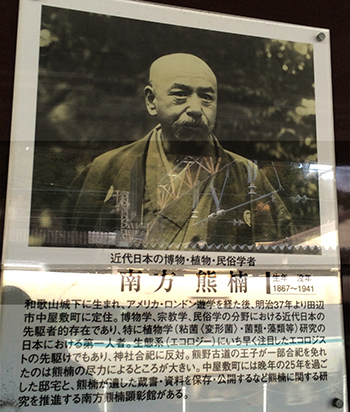 近代日本の博物・植物・民俗学者
南方 熊楠 生年 没年
1867～1941
和歌山城下に生まれ、アメリカ・ロンドン遊学を経た後、明治37年より田辺
市中屋敷町に定住。博物学、宗教学、民俗学の分野における近代日本の
先駆者的存在であり、特に植物学（粘菌（変形菌）・菌類・藻類等）研究の
日本における第一人者。生態系（エコロジー）にいち早く注目したエコロジス
トの先駆けでもあり、神社合祀に反対。熊野古道の王子が一部合祀を免れ
たのは熊楠の尽力によるところが大きい。中屋敷町には晩年の25年を過ご
した邸宅と、熊楠が遺した蔵書・資料を保存・公開するなど熊楠に関する研
究を推進する南方熊楠顕彰館がある。